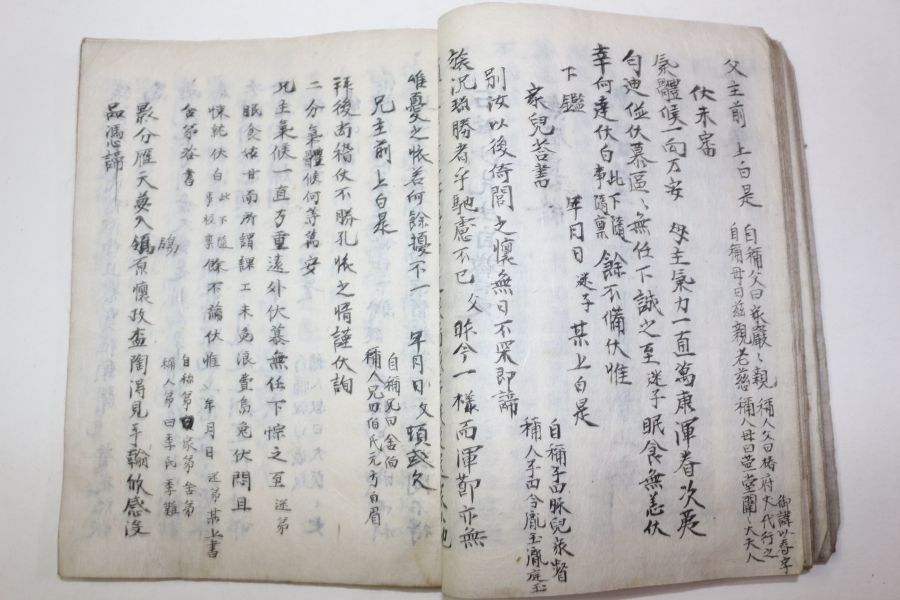 父主前 上白是 自稱父曰家嚴〻親 稱人父曰椿府丈代行之 御諱以春字
自稱母曰慈親老慈 稱人母曰萱堂閤〻大夫人
伏未審
氣體候一向万安 母主氣力一直萬康渾眷次第
勻迪並伏慕區〻無任下誠之至迷子眠食無恙伏
幸何達伏白 此下隨事隨稟 餘不備伏惟
下鑑 年月日 迷子 某上白是
家兒答書 自稱子曰豚兒家督
稱人子曰令胤玉胤庭玉
別汝以後倚閭之懷無日不深即諦
族況珎勝者乎馳慮不已父昨今一樣而渾節亦無
唯憂之恨若何餘擾不一 年月日父頓
兄主前上白是 自稱兄曰舍伯
稱人兄曰伯氏元方白眉
拜後尙稽伏不勝孔悵之情謹伏詢
二分氣體候何等萬安
兄主氣候一直万重遠外伏慕無任下悰之至 迷弟
眠食依甘而所謂課工未免浪費島兔伏悶且
悚純伏白 此下隨事枚稟 餘不備伏惟 年月日 迷弟某上書
舍弟答書 自称弟曰家弟舍弟
稱人弟曰季氏季難
景分雁天
品憑諦